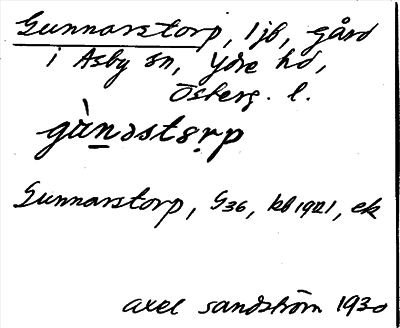 Gunnarstorp, 1 jb, gård
i Asby sn, Ydre hd,
Österg. l.
gùnəstọrp
Gunnarstorp, G36, kb 1921, ek
Axel Sandström 1930